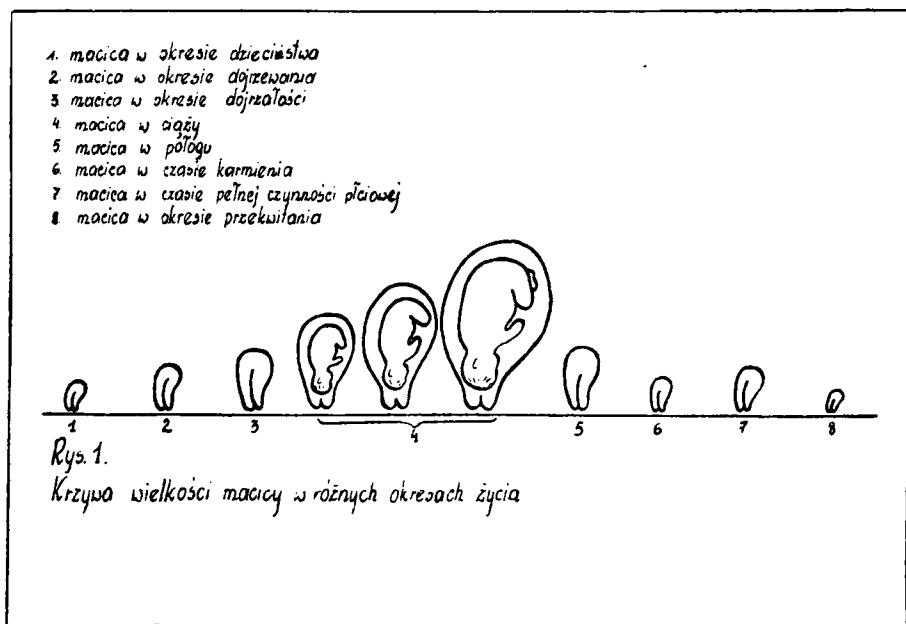 1. macica w okresie dzieciństwa
2. macica w okresie dojrzewania
3. macica w okresie dojrzałości
4. macica w ciąży
5. macica w połogu
6. macica w czasie karmienia
7. macica w czasie pełnej czynności płciowej
8. macica w okresie przekwitania
1 2 3 4 5 6 7 8
Rys. 1.
Krzywa wielkości macicy w różnych okresach życia